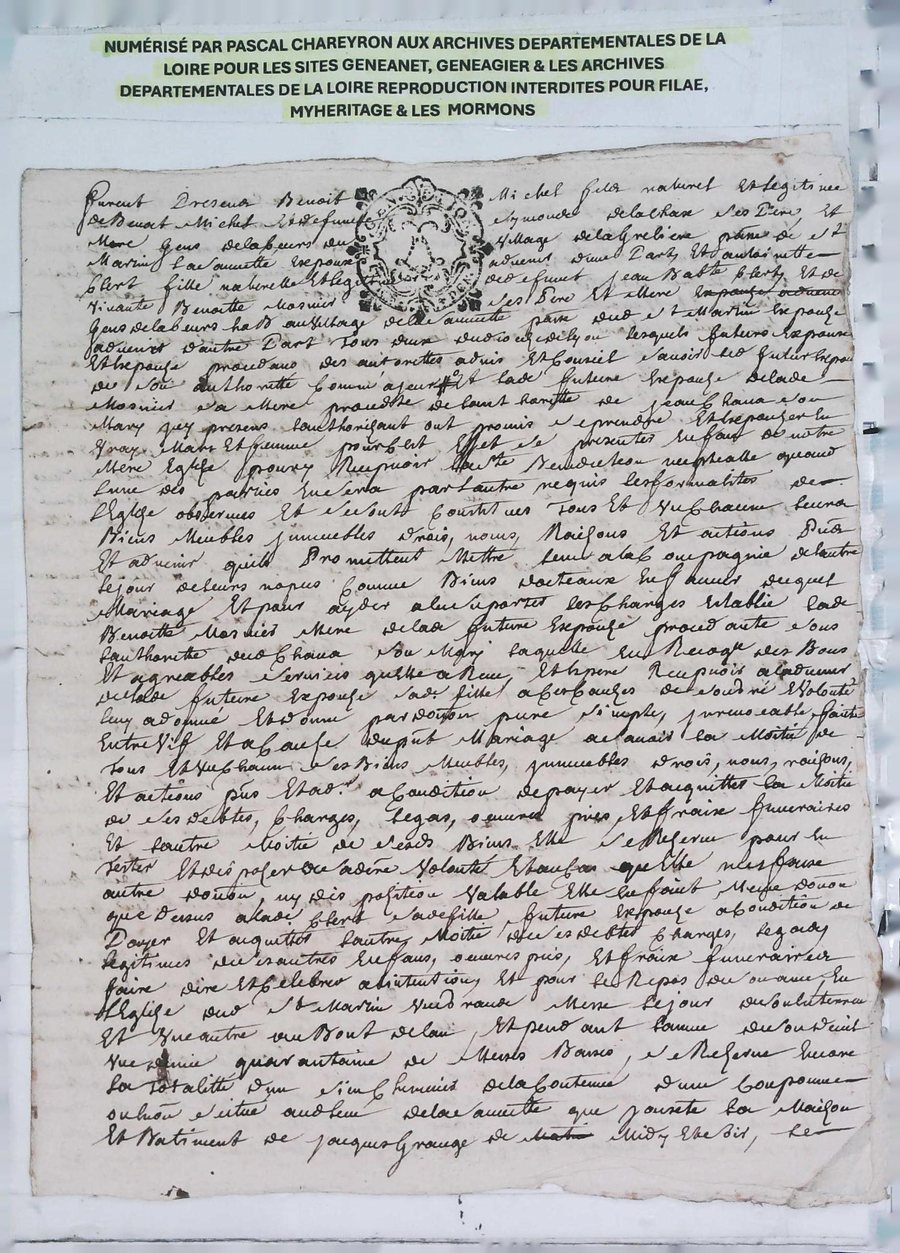 NUMÉRISÉ PAR PASCAL CHAREYRON AUX ARCHIVES DEPARTEMENTALES DE LA
LOIRE POUR LES SITES GENEANET, GENEAGIER & LES ARCHIVES
DEPARTEMENTALES DE LA LOIRE REPRODUCTION INTERDITES POUR FILAE,
MYHERITAGE & LES MORMONS
furent Presens Benoit Michel fils naturel Et Legitime
de Benoit Michel Et defunte Aymonde delachau ses Pere Et
Mere Gens delabeurs du Village delaGreliere pssse de st
Martin advenir dune Part, Et
Clert fille naturelle Et Legitime de defunt jean Clert Et de
Vivante Benoitte Mosnier ses Pere Et Mere
Gens delabeurs hab au Village de pssse dud st Martin Expouze
advenir dautre Part tous deux dudioceze delyon lesquels futurs Expoux
Et Expouze procedans des autorittes advis Et Conseil sauoir led futur Expoux
de son authoritte Comme Et lad future Expouze delade
Mosnier sa Mere procedte de lauthoritte de jean Chana son
Mary icy present lauthorizant ont promis se prendre Et Expouzer En
Vray Mary Et femme pour Cest Effet se presenter En face de notre
Mere Eglize pour y Recepuoir la ste Benediction nuptialle quand
lune des parties En sera par lautre requis les formalites de
lEglize observees Et se sont Constitues tous Et Un Chacun leurs
Biens Meubles jmmeubles Drois, noms, Raizons Et actions Pnts
Et advenir quils Promettent Mettre En la Compagnie delautre
le jour deleurs nopces Comme Biens dotaux En faueur duquel
Mariage Et pour ayder a suporter les Charges diceluy lade
Benoitte Mosnier Mere delade future Expouze procedante sous
lauthoritte dud Chana son Mary laquelle En Recoge des Bons
Et agreables services quelle a Receu, Et Espere Recepuoir aladvenir
delade future Expouze sade fille a Ces Causes de son gré Et Volonté
luy adonné Et donne par donon pure simple, jrrevocable, faitte
Entre Vif Et a Cause dupnt Mariage a scauoir la Moitié de
tous Et Un Chacun ses Biens Meubles, jmmeubles drois, noms, raizons,
Et actions pns Et adr a Condition depayer Et acquitter la Moitié
de ses debtes, Charges, legas, oeuures pies Et fraix funeraires
Et lautre Moitié de sesds Biens Elle se Reserve pour En
tester Et disposer Volonté Et au Cas quElle nen fasse
autre donon, ny disposition Valable Elle En fait Meme donon
que dessus alade Clert sade fille future Expouze a Condition de
Payer Et acquitter lautre Moitié de ses debtes Charges, legas,
legitimes de ses autres Enfans, oeuures pies, Et fraix funeraires
faire dire Et Celebrer a intention, Et pour le Repos de son ame, En
lEglize dud st Martin Une Grande Messe le jour de son Enterremt
Et Une autre au Bout delan, Et pendant lannee de son deuil
Une demie quarantaine de Messes Basses, se Reserve Encore
la totalitté dun Cheneuier dela Contenue dune Couponnee
ou Enuiron situé aud lieu que jouxte la Maizon
Et Batiment de jacques Grange de Midy Et soir, le